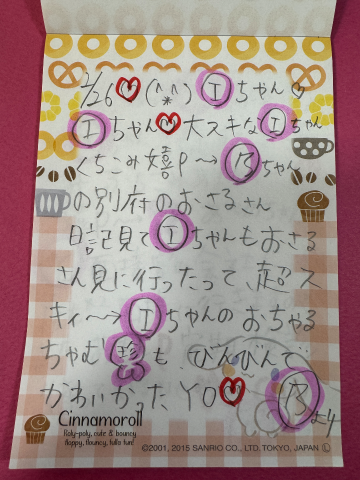 2/26♡(^*^)Ⓘちゃん♡
Ⓘちゃん♡大スキなⒾちゃん
くちこみ嬉P〜→Ⓑちゃん
の別府のおさるさん
日記見てⒾちゃんもおさる
さん見に行ったって、超ス
キィ〜→Ⓘちゃんのおちゃる
ちゃむも、びんびんで
かわいかったYO♡
より
Cinnamoroll
Roly-poly, cute & bouncy
floppy, flouncy, fulla fun!
©2001, 2015 SANRIO CO., LTD. TOKYO, JAPAN Ⓛ